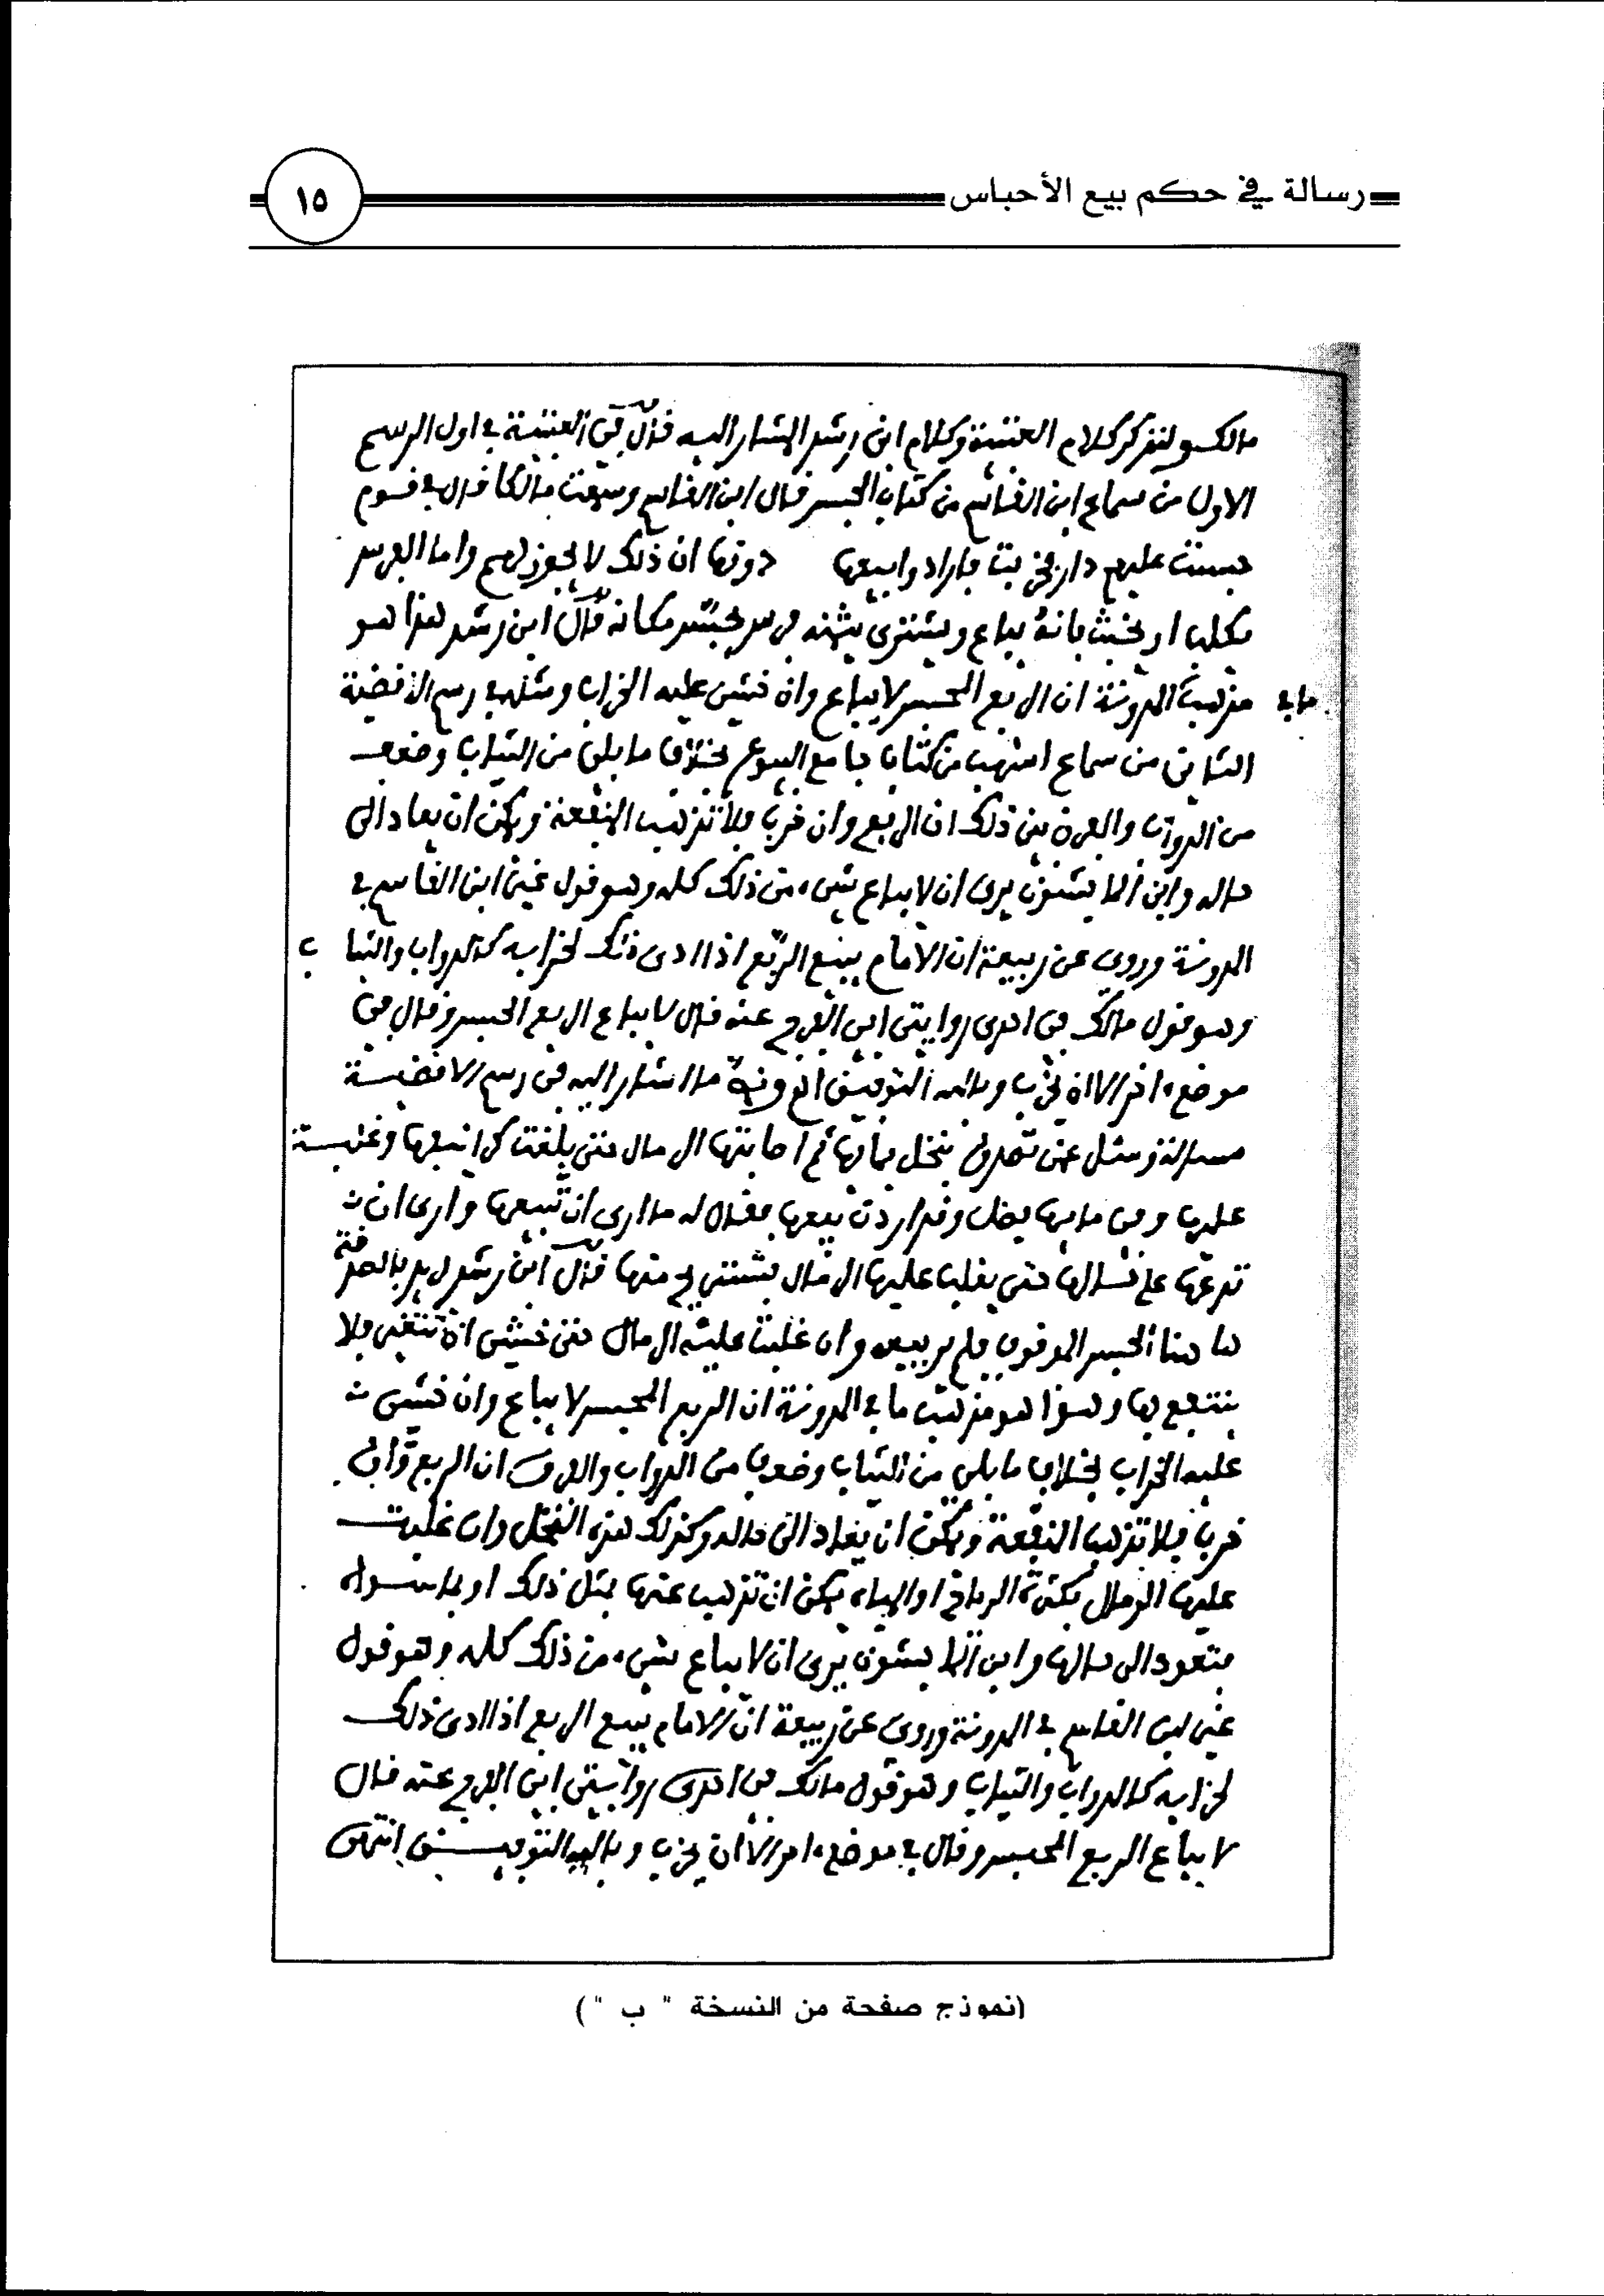 رسالة في حكم بيع الأحباس
١٥
مالك ولنذكر كلام العتبية وكلام ابن رشد المشار اليه قال في العتبية في اول الرسم
الاول من سماع ابن القاسم من كتاب الحبس قال ابن القاسم وسمعت مالكا قال في قوم
حبست عليهم دار فخربت فارادوا بيعها دونها ان ذلك لا يجوز لهم واما الفرس
يكلب او يخبث فانه يباع ويشترى بثمنه فرس يحبس مكانه قال ابن رشد هذا هو
مذهب المدونة ان الربع المحبس لا يباع وان خشي عليه الخراب ومثله في رسم الاقضية
ما في
الثاني من سماع اشهب من كتاب جامع البيوع بخلاف ما بلي من الثياب وضعف
من الدواب والفرق بين ذلك ان الربع وان خرب فلا تذهب البقعة ويمكن ان يعاد الى
حاله وابن الماجشون يرى ان لا يباع شيء من ذلك كله وهو قول غير ابن القاسم في
المدونة وروي عن ربيعة ان الامام يبيع الربع اذا ادى ذلك لخرابه كالدواب والثيا ب
وهو قول مالك في احدى روايتي ابي الفرج عنه قال لا يباع الربع الحبس وقال في
موضع اخر الا ان يخرب وبالله التوفيق ما اشار اليه في رسم الاقضية
مسالة وسئل عمن تصدق بنخل ثم اصابتها الرمال حتى بلغت
عليها وفي مابها فضل وقد اردت بيعها فقال له ما ارى ان تبيعها وارى ان
تدعها على حالها حتى يغلب عليها الرمال قال ابن رشد لم يرد بالصدقة
ها هنا الحبس الموقوف فلم ير بيعه وان غلبت عليه الرمال حتى خشي ان فلا
ينتفع بها وهذا هو مذهب ما في المدونة ان الربع المحبس لا يباع وان خشي
عليه الخراب بخلاف ما بلي من الثياب وضعف من الدواب والفرق ان الربع وان
خرب فلا تذهب البقعة ويمكن ان يعاد الى حاله وكذلك هذه النخل وان غلبت
عليها الرمال بكثرة الرياح او المياه يمكن ان تذهب عنها بمثل ذلك او بما سواه
فتعود الى حالها وابن الماجشون يرى ان لا يباع شيء من ذلك كله وهو قول
غير ابن القاسم في المدونة وروي عن ربيعة ان الامام يبيع الربع اذا ادى ذلك
لخرابه كالدواب والثياب وهو قول مالك في احدى روايتي ابي الفرج عنه قال
لا يباع الربع المحبس وقال في موضع اخر الا ان يخرب وبالله التوفيق انتهى
(نموذج صفحة من النسخة " ب ")